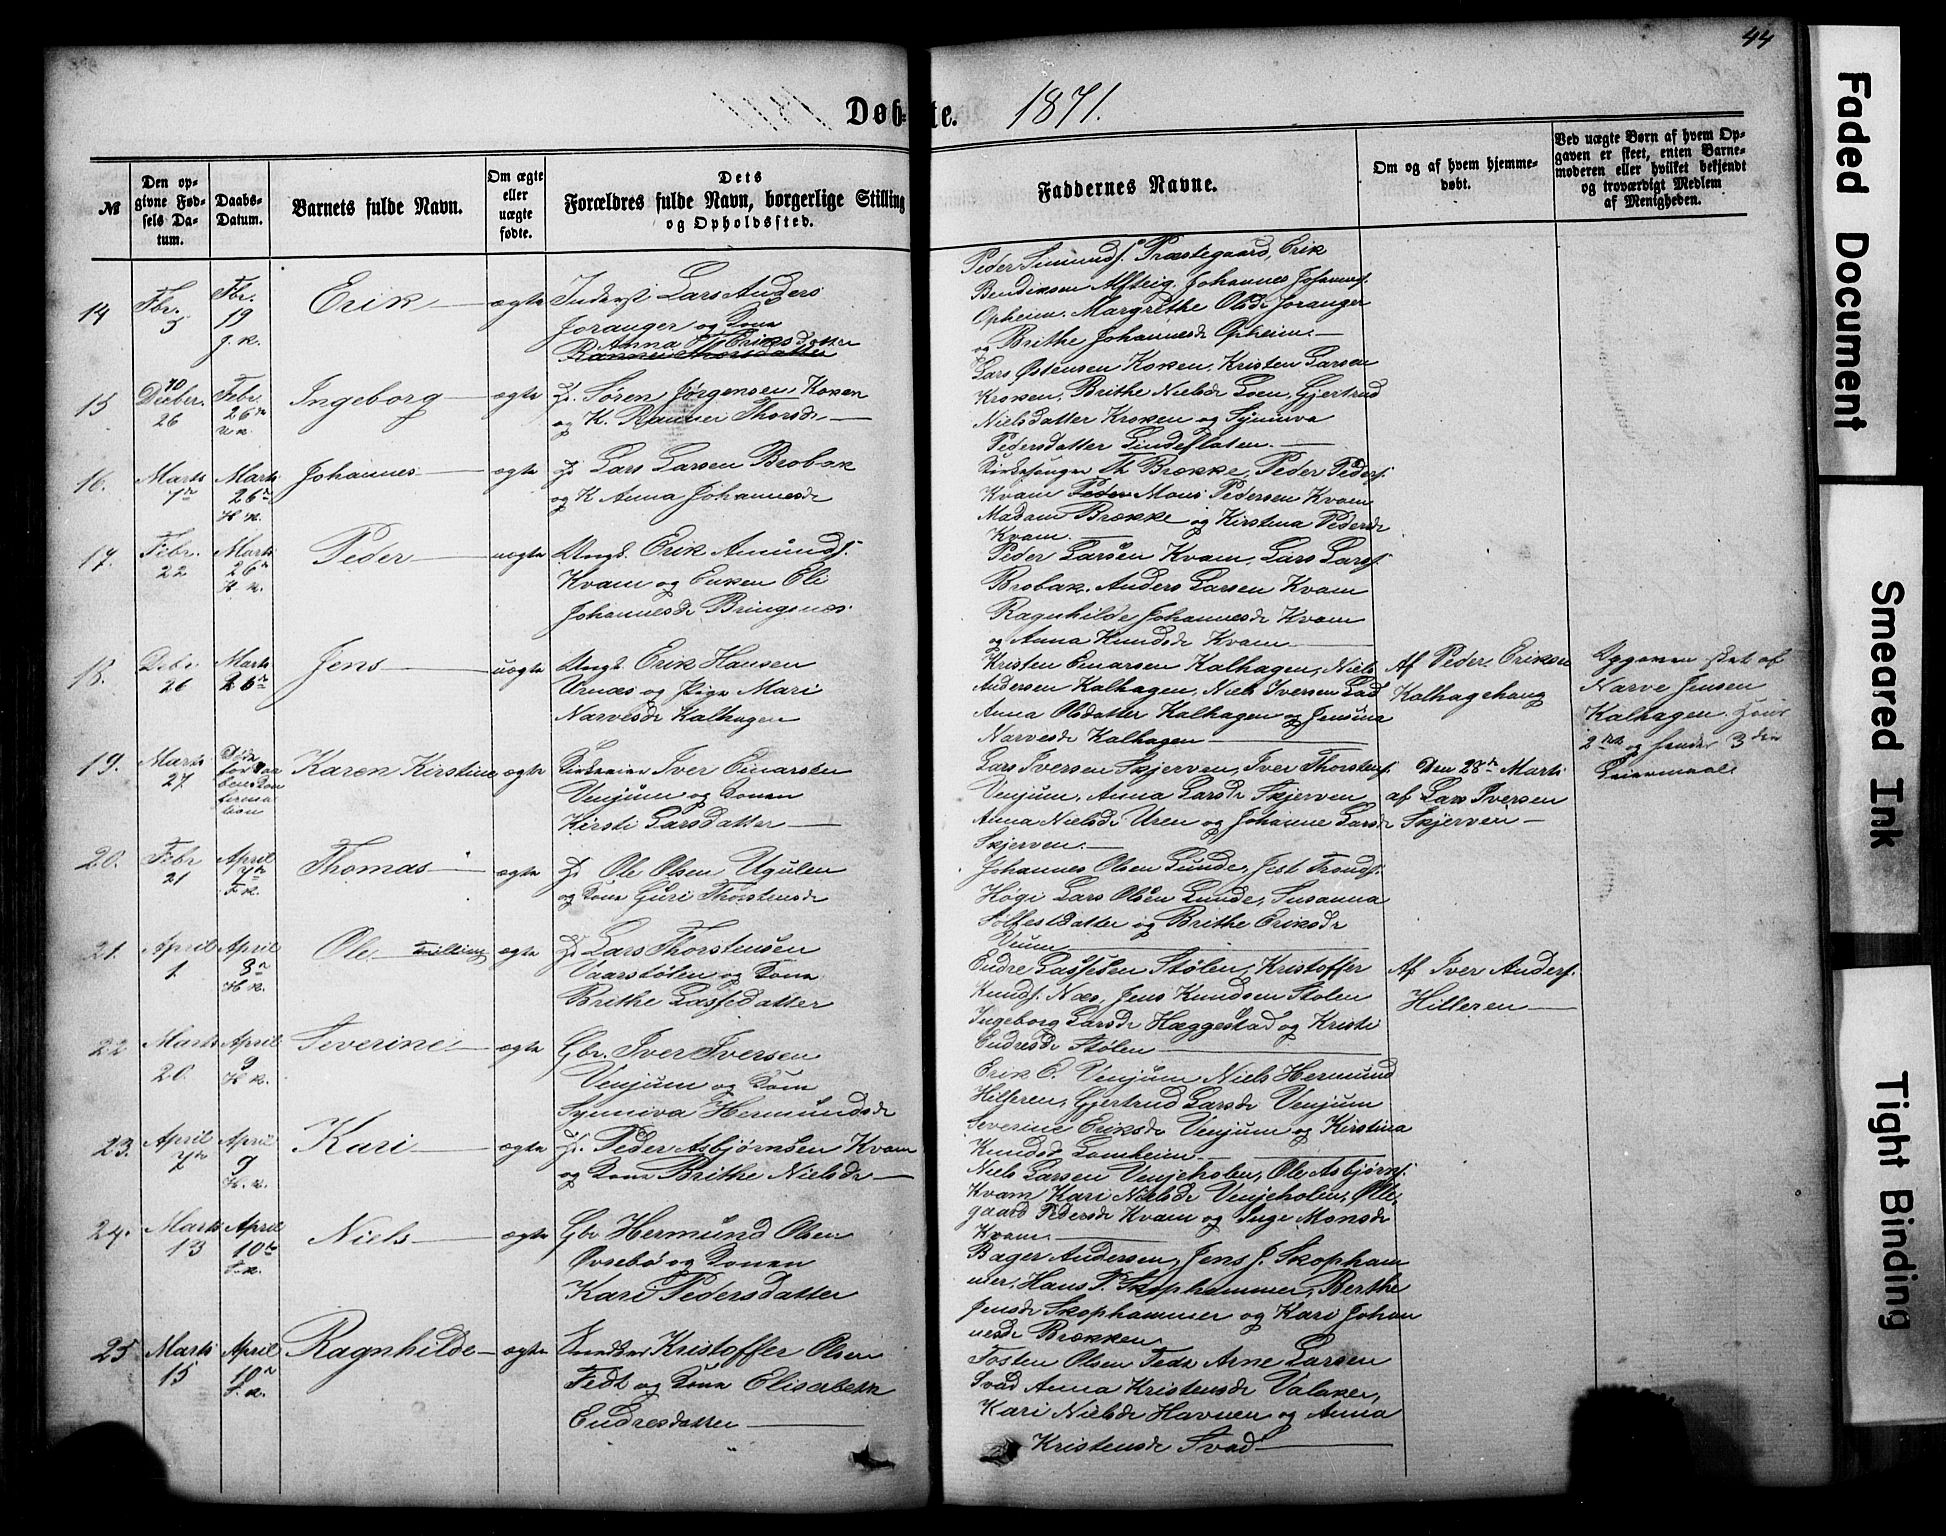 44
Døb- te. 1871.
№
Den op-
givne Fød-
sels Da-
tum.
Daabs-
Datum.
Barnets fulde Navn.
Om ægte
eller
uægte
fødte.
Dets
Forældres fulde Navn, borgerlige Stilling
og Opholdssted.
Faddernes Navne.
Om og af hvem hjemme-
døbt.
Ved uægte Børn af hvem Op-
gaven er skeet, enten Barne-
moderen eller hvilket bekjendt
og troværdigt Medlem
af Menigheden.
14
Fbr.
5
Fbr.
19
Erik
ægte
Inderst Lars Anders
Joranger og Kone
Anna Eriksdatter
Peder Simunds. Præstegaard, Erik
Bendiksen Alsteig, Johannes Johanns.
Opheim, Margrethe Olsdr Joranger
og Brithe Johannesdr Opheim.
15
Debr.
26
Febr.
26de
Ingeborg
ægte
Søren Jørgensen Kroken
og K. Thorsdr
Lars Østensen Kroken, Kristen Larsen
Kroken, Brithe Nielsdr Loen, Gjertrud
Nielsdatter Kroken og Synneva
Pedersdatter Lindeflaten.
16.
Marts
7de
Marts
26de
H. K.
Johannes
ægte
Lars Larsen Brobak
og K Anna Johannesdr
Kirkesanger Th Brække, Peder Peders.
Kvam Mons Pedersen Kvam
Madam Brække og Kirstina Pedersdr
Kvam.
17.
Febr.
22
Marts
26de
H. K.
Peder
uægte
Ungk. Erik Amunds.
Kvam og Enken Eli
Johannesdr Bringsnes.
Peder Larsen Kvam, Lars Lars.
Brobak, Anders Larsen Kvam
Ragnhilde Johannesdr Kvam
og Anna Knudsdr Kvam
18.
Debr
26
Marts
26de
Jens
uægte
Ungk. Erik Hansen
Ornæs og Pige Mari
Narvesdr Kalhagen
Kristen Einarsen Kalhagen, Niels
Andersen Kalhagen, Niels Iversen
Anna Olsdatter Kalhagen og Jensina
Narvesdr Kalhagen
Af Peder Eriksen
Kalhagehaug
Opgaven sket af
Narve Jensen
Kalhagen, hans
2det og hendes 3die
Leiermaal
19.
Marts
27
Døde
før Daa
bens Kon
firma
tion
Karen Kirstine
ægte
Iver Einarsen
Venjum og Konen
Kirsti Larsdatter
Lars Iversen Skjerven, Iver Thorstens.
Venjum, Anna Larsdr Skjerven
Anna Nielsdr Uren og Johanne Larsdr
Skjerven.
Den 28de Marts
af Lars Iversen
Skjerven
20.
Febr
21
April
7de
F. K.
Thomas
ægte
Ole Olsen Ugulen
og Kone Guri Thorstensdr
Johannes Olsen Lunde, Jest Tronds.
Høgi Lars Olsen Lunde, Susanna
Solfestdatter og Brithe Eriksdr
21.
April
1
April
9
H. K.
Ole Tvilling
ægte
Lars Thorstensen
Vaarstølen og Kone
Brithe Lassedatter
Endre Lassesen Stølen, Kristoffer
Knuds. Næs, Jens Knudsen Stølen
Ingeborg Larsdr Hæggestad og Kristi
Endresdr Stølen
Af Iver Anders.
Hilleren
22
Marts
20
April
9
H. K.
Severine
ægte
Gbr. Iver Iversen
Venjum og Kone
Synneva Hermundsdr
Erik E. Venjum, Niels Hermund
Hilleren, Gjertrud Larsdr Venjum
Severine Eriksdr Venjum og Kirstina
Knudsd Lomheim
23.
April
April
9
H. K.
Kari
ægte
Peder Asbjørnsen Kvam
og Kone Brithe Nielsdr
Niels Larsen Venjeholen, Ole Asbjørns.
Kvam, Kari Nielsdr Venjeholen, Olle-
gaard Pedersdr Kvam og Inge Monsdr
Kvam
24.
Marts
13
April
10de
Niels
ægte
Gbr Hermund Olsen
Ovsebø og Konen
Kari Pedersdatter
Bager Andersen, Jens J. Skopham
mer, Hans P. Skophammer, Berthe
Jensdr Skophammer og Kari Johan
nesdr Brækken
25
Marts
15
April
10de
Ragnhilde
ægte
Kristoffer Olsen
Fedt og Kone Elisabeth
Endresdatter
Tosten Olsen Fedt Arne Larsen
Svad Anna Kristensdr Valaker,
Kari Nielsdr Havnen og Anna
Kristensdr Svad
Faded Document
Smeared Ink
Tight Binding